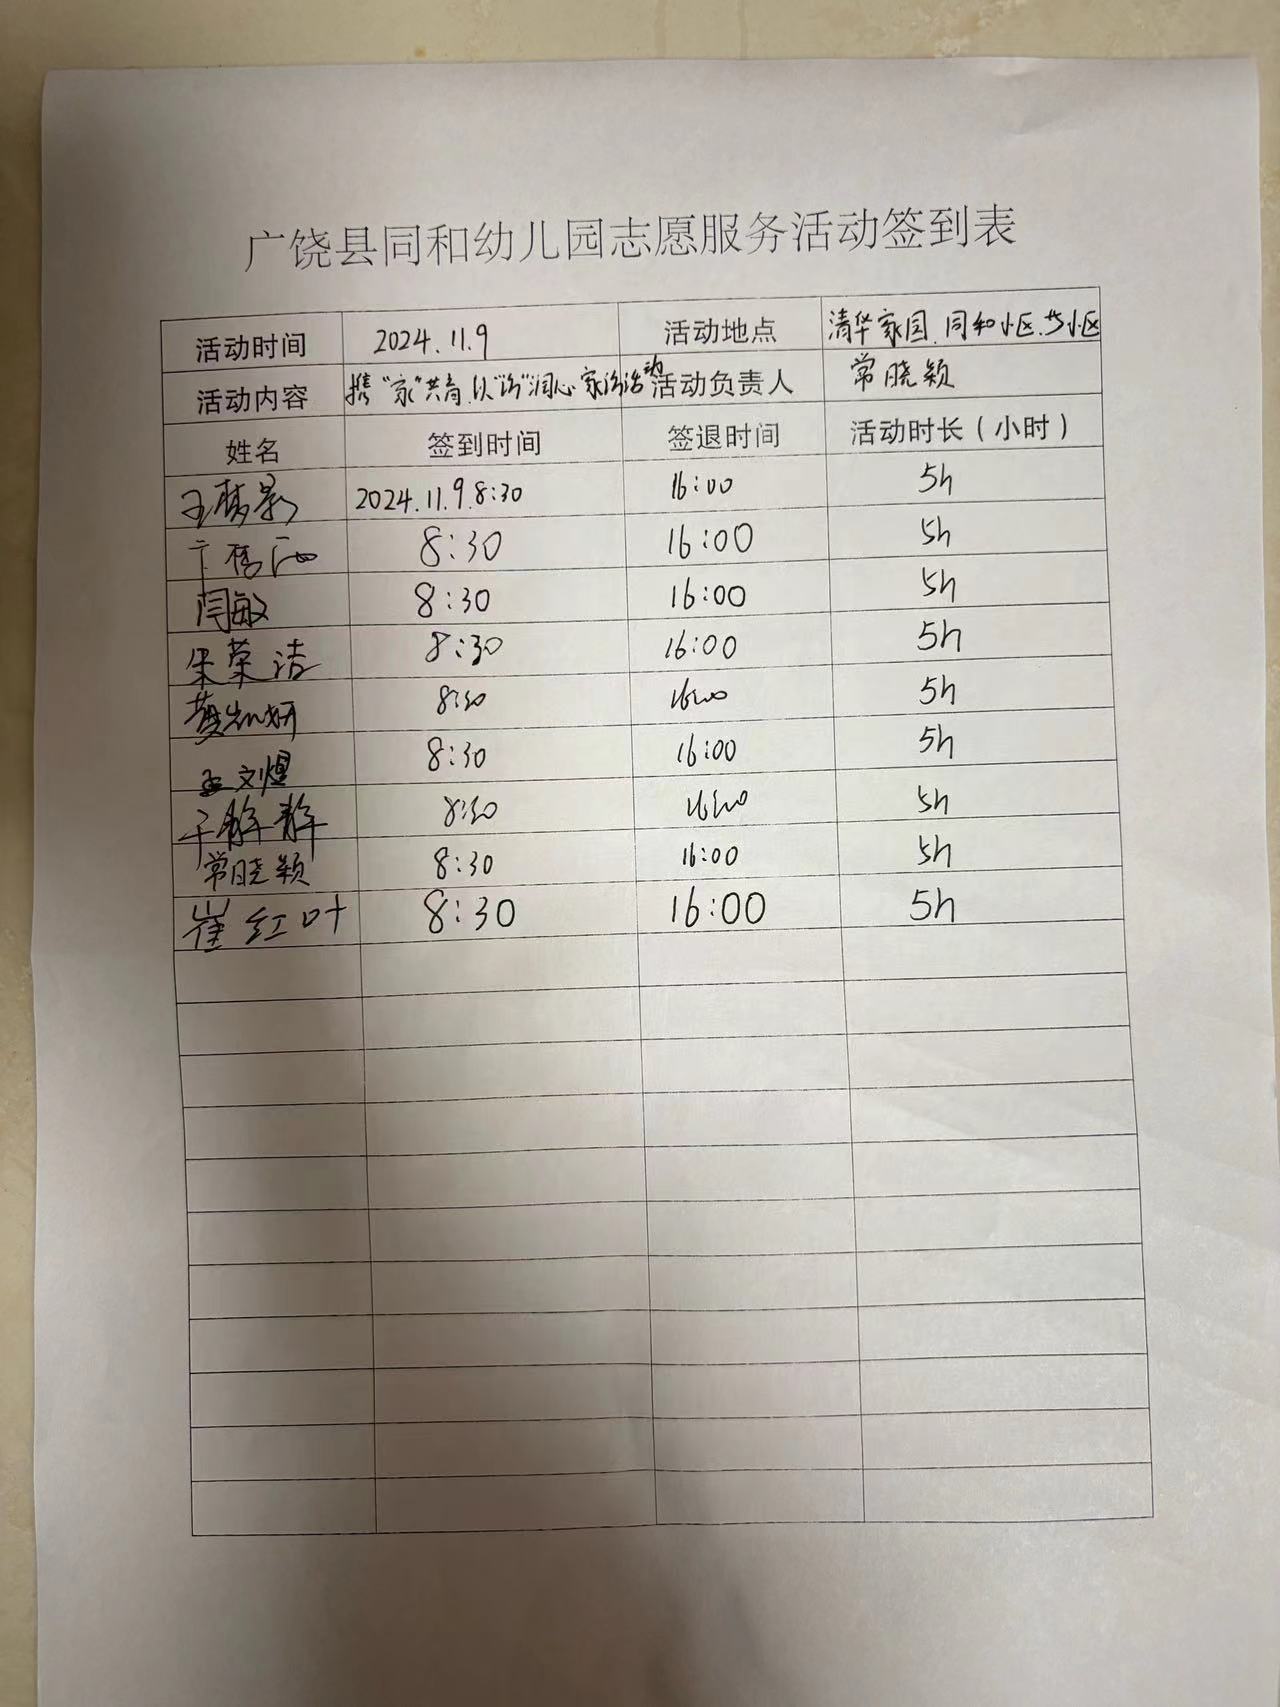 广饶县同和幼儿园志愿服务活动签到表
活动时间 2024.11.9 活动地点 清华家园.同和小区.等小区
活动内容 携"家"共育.以"访"润心家访活动 活动负责人 常晓颖
姓名 签到时间 签退时间 活动时长(小时)
王梦影 2024.11.9.8:30 16:00 5h
8:30 16:00 5h
闫敏 8:30 16:00 5h
朱荣洁 8:30 16:00 5h
8:30 16:00 5h
王文煜 8:30 16:00 5h
于静静 8:30 16:00 5h
常晓颖 8:30 16:00 5h
崔红叶 8:30 16:00 5h